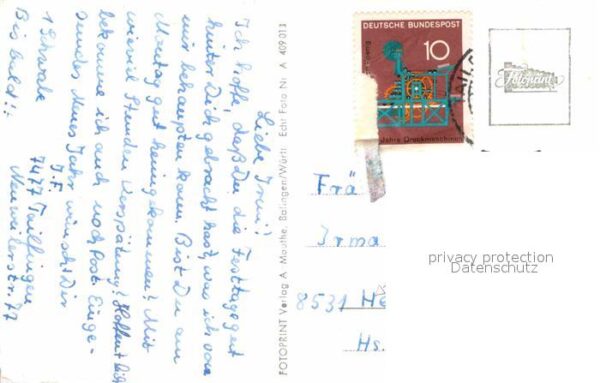 Liebe Irmi!
Ich hoffe, daß Du die Festtage gut
hinter Dich gebracht hast, was ich von
mir behaupten kann. Bist Du am
Montag gut heimgekommen? Mit
wieviel Stunden Verspätung? Hoffentlich
bekomme ich auch noch Post. Einge-
sundes Neues Jahr wünscht Dir
J. F.
7477 Tailfingen
Neuweilerstr. 77
1 Schwabe
Bis bald!!
FOTOPRINT Verlag A. Mauthe, Balingen/Württ. Echt Foto Nr. A 409 013
DEUTSCHE BUNDESPOST
10
Jahre Druckmaschinen
Fotoprint
Frä
Irma
8531 He
Hs.
privacy protection
Datenschutz